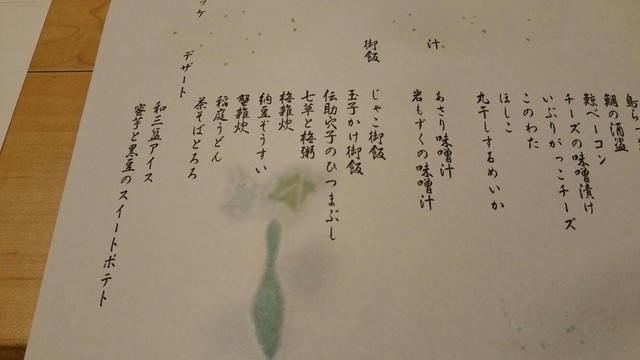 島ら
鯛の酒盗
鯨ベーコン
チーズの味噌漬け
いぶりがっこチーズ
このわた
ほしこ
丸干しするめいか
汁
あさり味噌汁
岩もずくの味噌汁
御飯
じゃこ御飯
玉子かけ御飯
伝助穴子のひつまぶし
七草と梅粥
梅雑炊
納豆ぞうすい
蟹雑炊
稲庭うどん
茶そばとろろ
デザート
和三盆アイス
蜜芋と黒豆のスイートポテト
ッケ